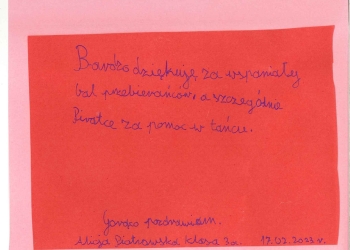 Bardzo dziękuję za wspaniały
bal przebierańców, a szczególnie
Piratce za pomoc w tańcu.
Gorąco pozdrawiam.
Piotrowska klasa 3a. 17.02.2023 r.